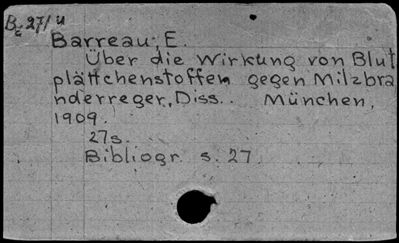 Bc 27/u
Barreau, E.
Über die Wirkung von Blut
plättchenstoffen gegen Milzbra
nderreger, Diss.. München,
1909.
27s.
Bibliogr. s. 27